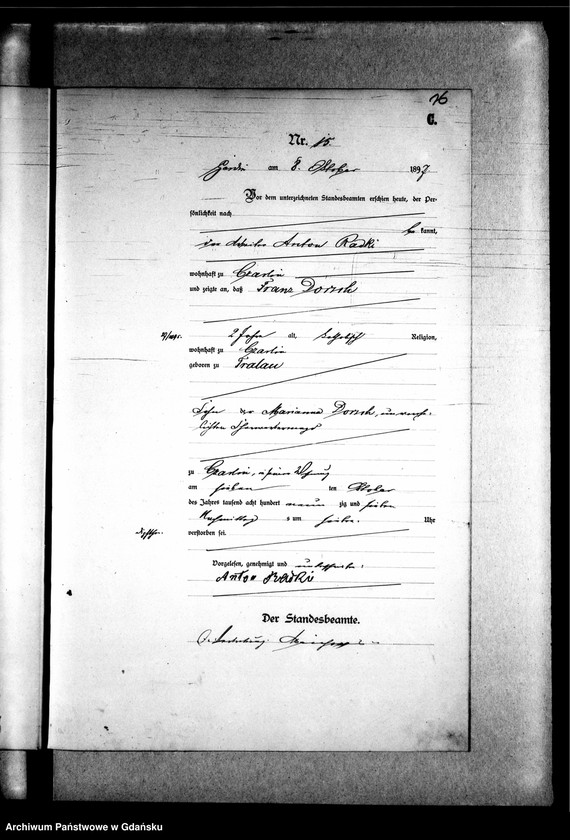 76
C.
Nr. 15.
am 8. Oktober 1897
Vor dem unterzeichneten Standesbeamten erschien heute, der Per-
sönlichkeit nach
be kannt,
der Arbeiter Anton Radki
wohnhaft zu Czarlin
und zeigte an, daß Franz Dorsch
2 Jahr alt, katholisch Religion,
wohnhaft zu Czarlin
geboren zu Tralau
Sohn der Marianna Dorsch, unverehe-
lichten
zu Czarlin, in seiner Wohnung
am sieben ten Oktober
des Jahres tausend acht hundert neun zig und sieben
Nachmittag s um sieben Uhr
verstorben sei.
Vorgelesen, genehmigt und unterschrieben
Anton Radki
Der Standesbeamte.
Archiwum Państwowe w Gdańsku